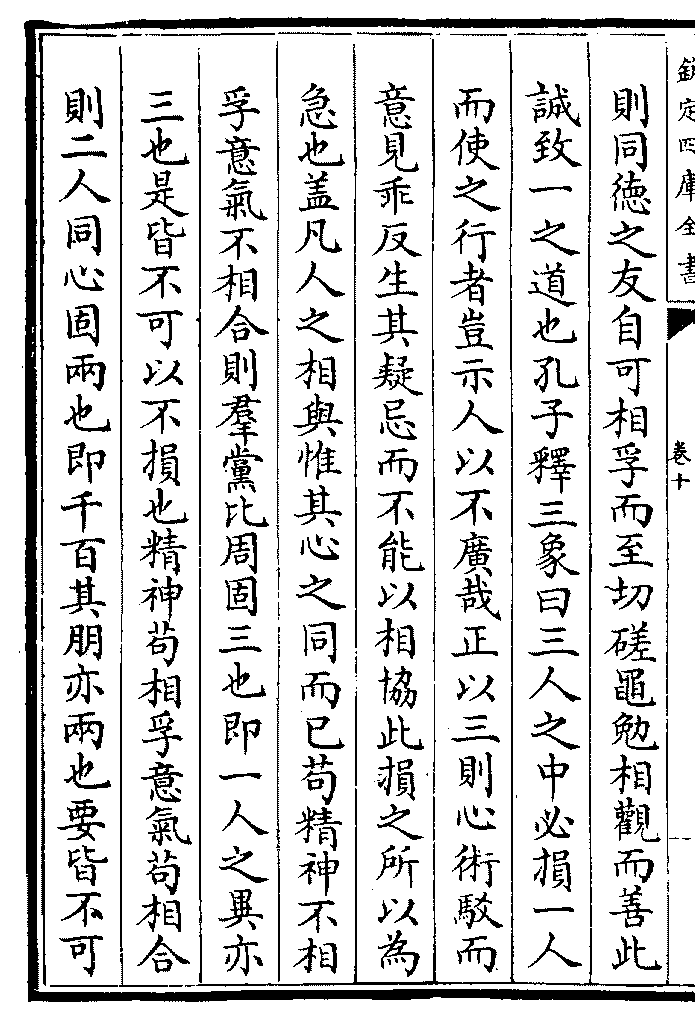 欽定四庫全書
卷十
則同德之友自可相孚而至切磋黽勉相觀而善此
誠致一之道也孔子釋三象曰三人之中必損一人
而使之行者豈示人以不廣哉正以三則心術駁而
意見乖反生其疑忌而不能以相協此損之所以為
急也盖凡人之相與惟其心之同而已苟精神不相
孚意氣不相合則羣黨比周固三也即一人之異亦
三也是皆不可以不損也精神苟相孚意氣苟相合
則二人同心固兩也即千百其朋亦兩也要皆不可